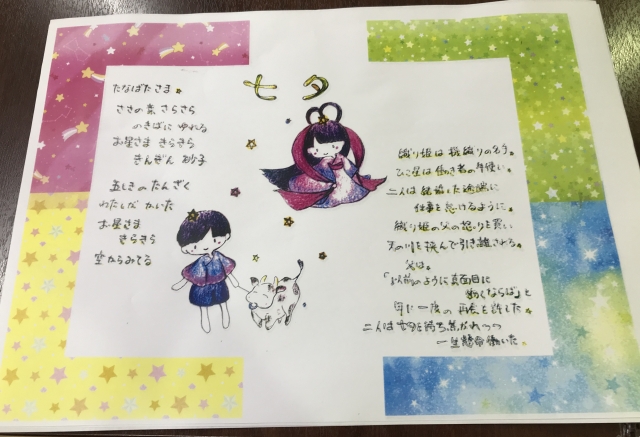 七夕
たなばたさま
ささの葉 さらさら
のきばに ゆれる
お星さま きらきら
きんぎん 砂子
五しきの たんざく
わたしが かいた
お星さま
きらきら
空からみてる
織り姫は 機織りの名手。
ひこ星は 働き者の牛使い。
二人は 結婚した途端に
仕事を 怠けるように。
織り姫の 父の 怒りを 買い
天の川を 挟んで 引き離される。
父は。
「以前のように 真面目に
働くならば」と
年に一度の 再会を 許した。
二人は 七夕を 待ち焦がれつつ
一生懸命 働いた。